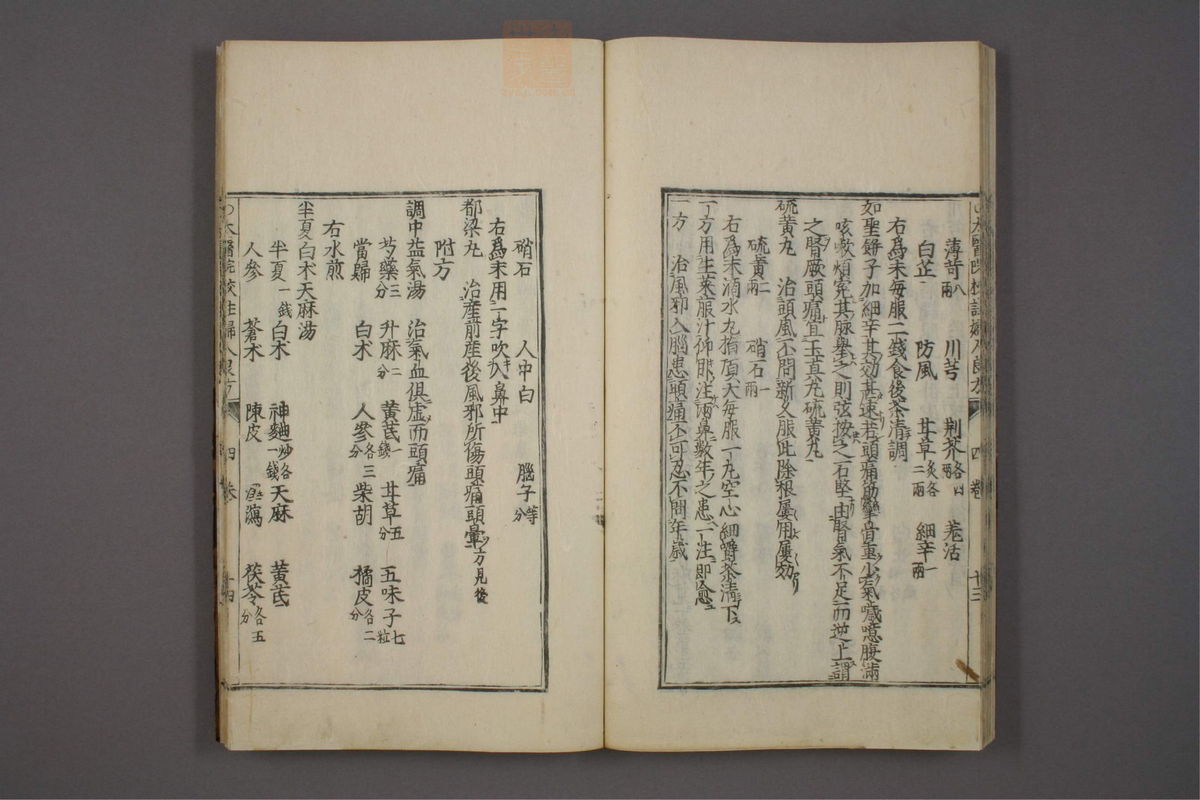 薄苛八兩　川芎　荆芥畧　羗活
白芷　防風　甘草炙各二兩　細辛一兩
右爲末每服二錢食後茶清調
如聖餅子加細辛其効甚速若頭痛筋攣骨重少氣噦噫腹滿
咳嗽煩寃其脉舉之則弦按之石堅由腎氣不足而逆上謂
之腎厥頭痛宜玉真丸硫黃丸
硫黃丸　治頭風不問新久服此除根屢用屢効
硫黃二兩　硝石一兩
右爲末滴水丸指頂大每服一丸空心細嚼茶清下
一方用生萊菔汁仰卧注兩鼻數年之患一注即愈
一方　治風邪入腦患頭痛不可忍不問年歲
四卷　十三
硝石　人中白　腦子等分
右爲末用一字吹入鼻中
都梁丸　治産前産後風邪所傷頭痛頭暈方見後
附方
調中益氣湯　治氣血俱虚而頭痛
芍藥三分　升麻二分　黃芪一錢　甘草五分　五味子七粒
當歸　白术　人參各三分　柴胡　橘皮各二分
右水煎
半夏白术天麻湯
半夏一錢　白术　神麯炒各一錢　天麻　黃芪
人參　蒼术　陳皮　澤瀉　茯苓各五分
太醫院校註婦人良方　四卷　十四